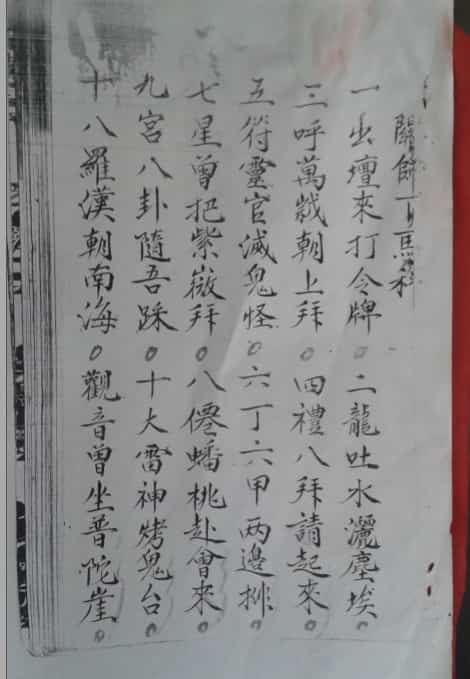 關師下馬科
一出壇來打令牌。二龍吐水灑塵埃。
三呼萬歲朝上拜。四禮八拜請起來。
五符靈官滅鬼怪。六丁六甲两邊排。
七星曾把紫微拜。八僊蟠桃赴會來。
九宮八卦隨吾踩。十大雷神烤鬼台。
十八羅漢朝南海。觀音曾坐普陀崖。